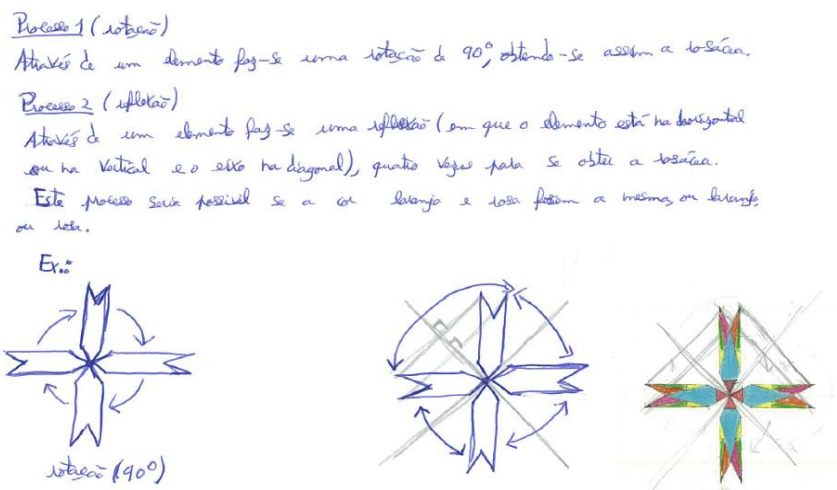 Processo 1 (rotação)
Através de um elemento faz-se uma rotação de 90°, obtendo-se assim a rosácea.
Processo 2 (reflexão)
Através de um elemento faz-se uma reflexão (em que o elemento está na horizontal
ou na vertical e o eixo na diagonal), quatro vezes para se obter a rosácea.
Este processo seria possível se a cor laranja e rosa fossem a mesma, ou laranja,
ou rosa.
Ex.:
rotação (90°)